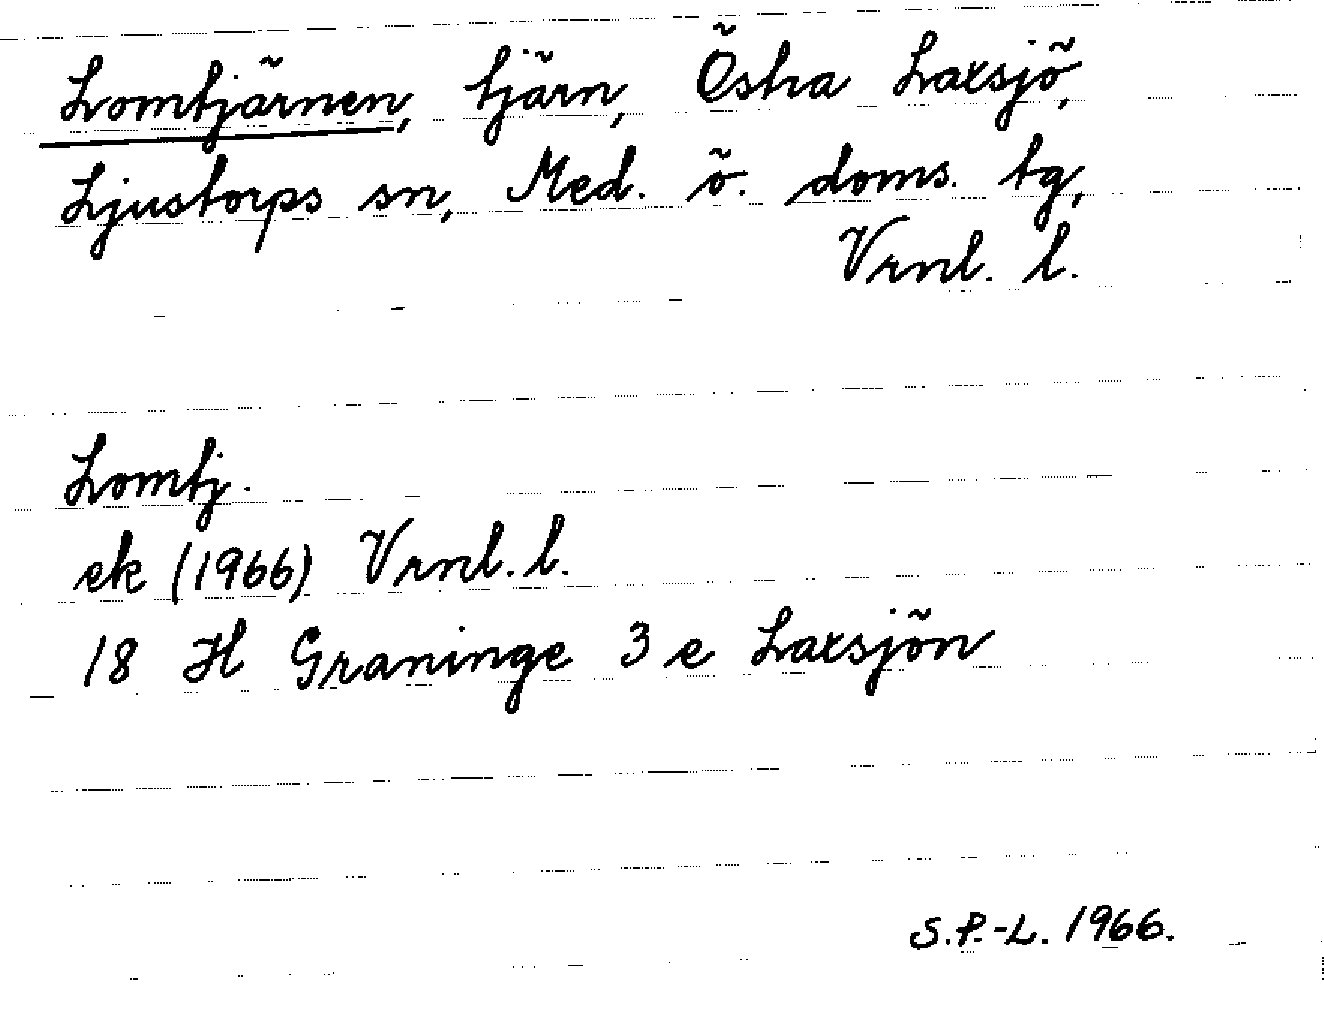 Lomtjärnen, tjärn, Östra Laxsjö,
Ljustorps sn, Med. ö. doms. tg,
Vrnl. l.
Lomtj.
ek (1966) Vrnl. l.
18 H Graninge 3 e Laxsjön
S.P.-L. 1966.